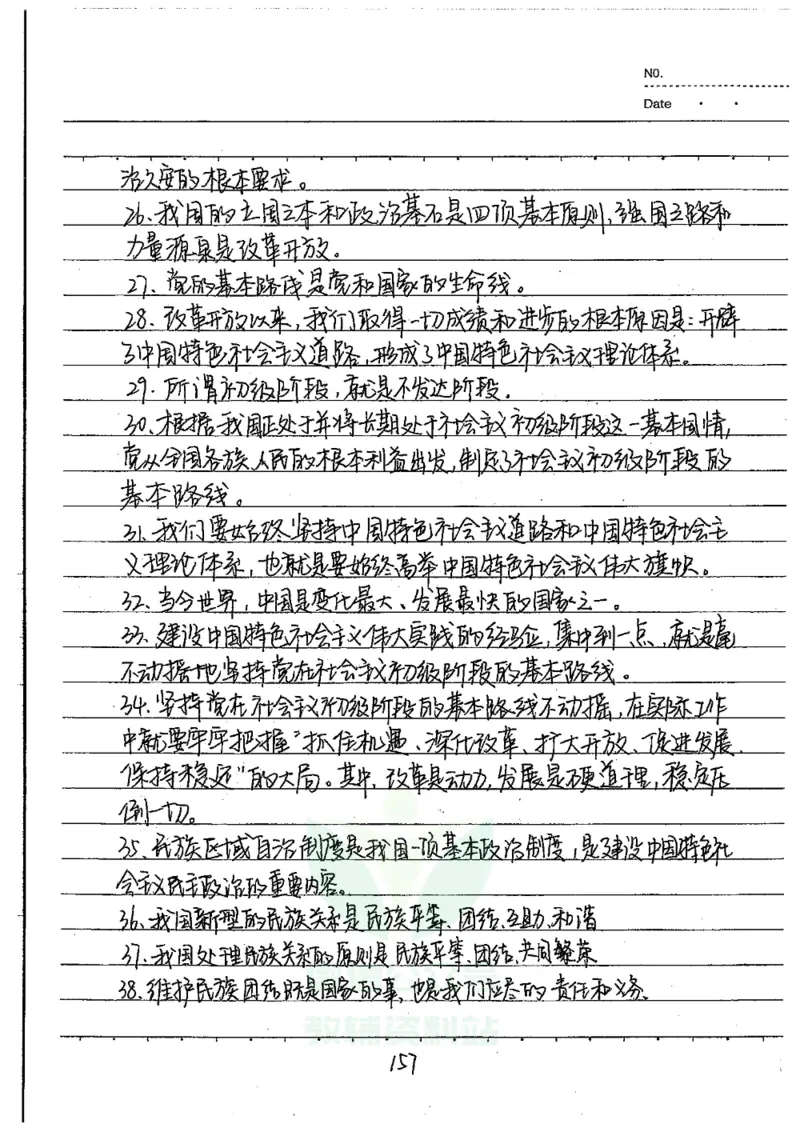 NO.
Date
治久安的根本要求。
26、我国的立国之本和政治基石是四项基本原则,强国之路和
力量源泉是改革开放。
27、党的基本路线是党和国家的生命线。
28、改革开放以来,我们取得一切成绩和进步的根本原因是:开辟
了中国特色社会主义道路,形成了中国特色社会主义理论体系。
29、所谓初级阶段,就是不发达阶段。
30、根据我国正处于并将长期处于社会主义初级阶段这一基本国情,
党从全国各族人民的根本利益出发,制定了社会主义初级阶段的
基本路线。
31、我们要始终坚持中国特色社会主义道路和中国特色社会主
义理论体系,也就是要始终高举中国特色社会主义伟大旗帜。
32、当今世界,中国是变化最大、发展最快的国家之一。
33、建设中国特色社会主义伟大实践的经验,集中到一点,就是毫
不动摇地坚持党在社会主义初级阶段的基本路线。
34、坚持党在社会主义初级阶段的基本路线不动摇,在实际工作
中就要牢牢把握“抓住机遇、深化改革、扩大开放、促进发展、
保持稳定”的大局。其中,改革是动力,发展是硬道理,稳定压
倒一切。
35、民族区域自治制度是我国一项基本政治制度,是建设中国特色社
会主义民主政治的重要内容。
36、我国新型的民族关系是民族平等、团结、互助、和谐
37、我国处理民族关系的原则是民族平等、团结、共同繁荣
38、维护民族团结既是国家的事,也是我们应尽的责任和义务、
教辅资料站
157